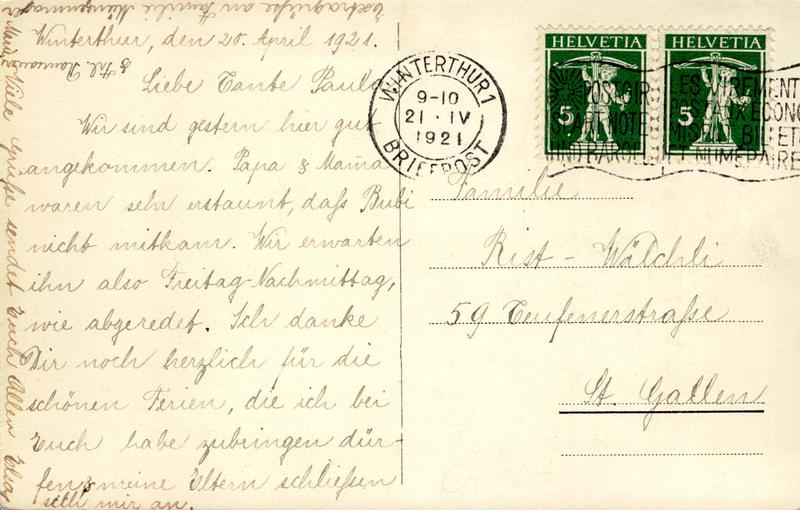 Winterthur, den 20. April 1921.
Liebe Tante Paula
Wir sind gestern hier gut
angekommen. Papa & Mama
waren sehr erstaunt, daß Bubi
nicht mitkam. Wir erwarten
ihn also Freitag-Nachmittag,
wie abgeredet. Ich danke
Dir noch herzlich für die
schönen Ferien, die ich bei
Euch habe zubringen dür-
fen & meine Eltern schließen
sich mir an.
Viele Grüße sendet Euch Allen Elsa
Extragrüße an Familie
& Frl.
WINTERTHUR 1
9-10
21·IV
1921
BRIEFPOST
HELVETIA
5
HELVETIA
5
LES VIREMENT
POSTAUX ECONO
MISENT BILLET
ET NUMERAIRE
Familie
Rist-Wälchli
59 Teufenerstraße
St. Gallen